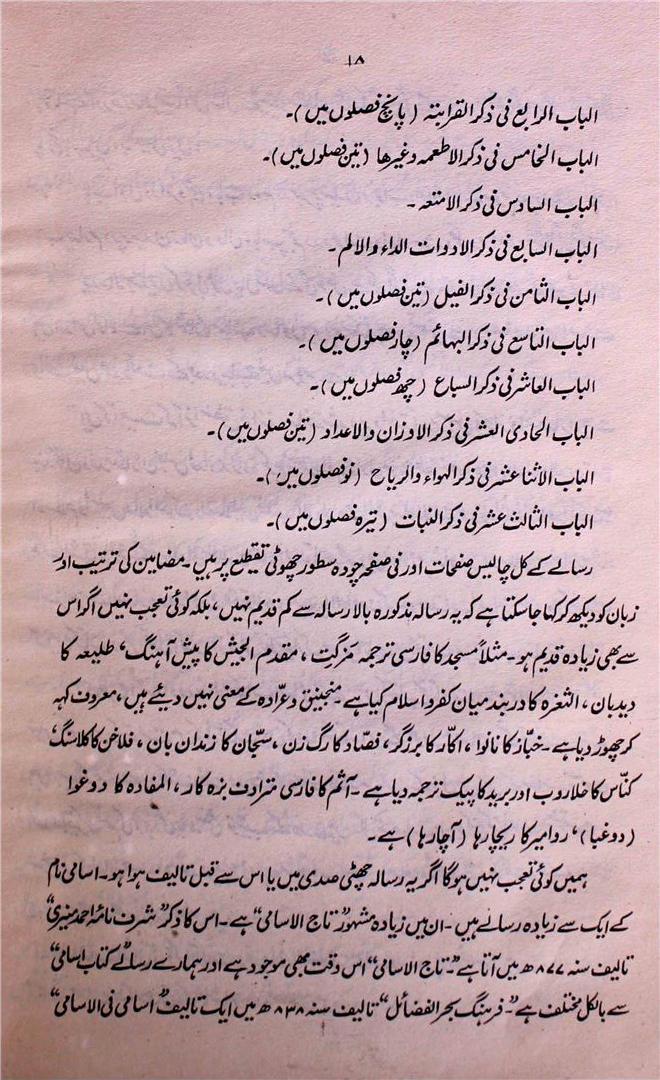 ۱۸
الباب الرابع فی ذکر القرابتہ (پانچ فصلوں میں)۔
الباب الخامس فی ذکر الاطعمہ وغیرھا (تین فصلوں میں)۔
الباب السادس فی ذکر الامتعہ۔
الباب السابع فی ذکر الادوات الداء والالم۔
الباب الثامن فی ذکر الفیل (تین فصلوں میں)۔
الباب التاسع فی ذکر البہائم (چار فصلوں میں)۔
الباب العاشر فی ذکر السباع (چھ فصلوں میں)۔
الباب الحادی العشر فی ذکر الاوزان والاعداد (تین فصلوں میں)۔
الباب الاثنا عشر فی ذکر الہواء والریاح (نو فصلوں میں)۔
الباب الثالث عشر فی ذکر النبات (تیرہ فصلوں میں)۔
رسالے کے کل چالیس صفحات اور فی صفحہ چودہ سطور چھوٹی تقطیع پر ہیں۔ مضامین کی ترتیب اور
زبان کو دیکھ کر کہا جا سکتا ہے کہ یہ رسالہ مذکورہ بالا رسالہ سے کم قدیم نہیں، بلکہ کوئی تعجب نہیں اگر اس
سے بھی زیادہ قدیم ہو۔ مثلاً مسجد کا فارسی ترجمہ مَزگت، مقدم الجیش کا پیش آہنگ، طلیعہ کا
دیدبان، الثغرہ کا دربند میان کفر و اسلام کیا ہے۔ منجنیق و عرّادہ کے معنی نہیں دیئے ہیں، معروف کہہ
کر چھوڑ دیا ہے۔ خبّاز کا نانوا، اکّار کا برزگر، فصّاد کا رگ زن، سجّان کا زندان بان، فلاخن کا کلاسنگ،
کنّاس کا خلاروب اور برید کا پیک ترجمہ دیا ہے۔ آثم کا فارسی مترادف بزہ کار، المفادہ کا دوغوا
(دوغبا)، روامیر کا ریچارہا (آچارہا) ہے۔
ہمیں کوئی تعجب نہیں ہوگا اگر یہ رسالہ چھٹی صدی میں یا اس سے قبل تالیف ہوا ہو۔ اسامی نام
کے ایک سے زیادہ رسالے ہیں۔ ان میں زیادہ مشہور "تاج الاسامی" ہے۔ اس کا ذکر "شرف نامۂ احمد منیری"
تالیف سنہ ۸۷۷ھ میں آتا ہے۔ "تاج الاسامی" اس وقت بھی موجود ہے اور ہمارے رسالے "کتاب اسامی"
سے بالکل مختلف ہے۔ "فرہنگ بحر الفضائل" تالیف سنہ ۸۳۸ھ میں ایک تالیف "اسامی فی الاسامی"